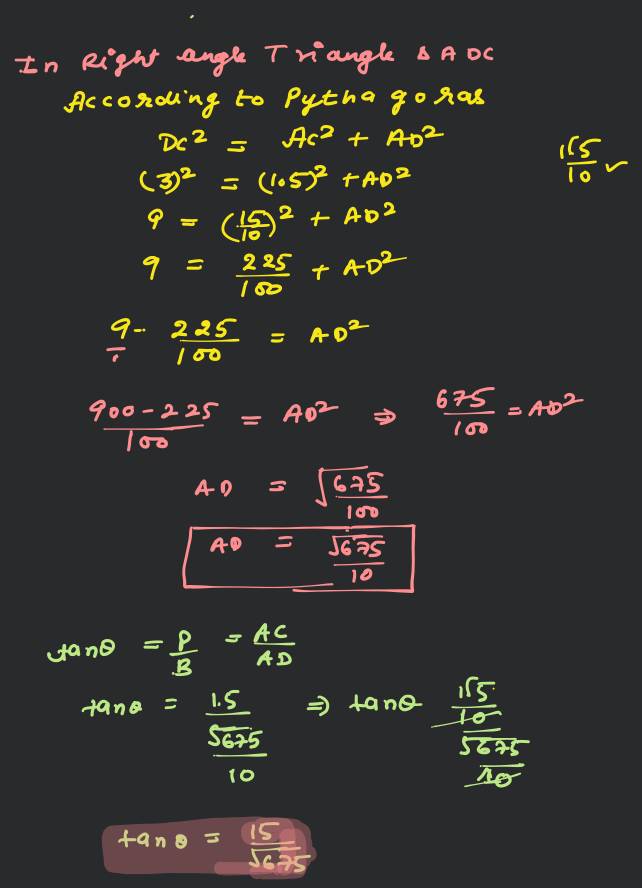 In Right angle Triangle Δ ADC
According to Pythagoras
DC² = AC² + AD²
(3)² = (1.5)² + AD²
15/10 ✓
9 = (15/10)² + AD²
9 = 225/100 + AD²
9/1 - 225/100 = AD²
900-225/100 = AD² ⇒ 675/100 = AD²
AD = √(675/100)
AD = √675/10
tanθ = P/B = AC/AD
tanθ = 1.5/(√675/10) ⇒ tanθ (15/10)/(√675/10)
tanθ = 15/√675